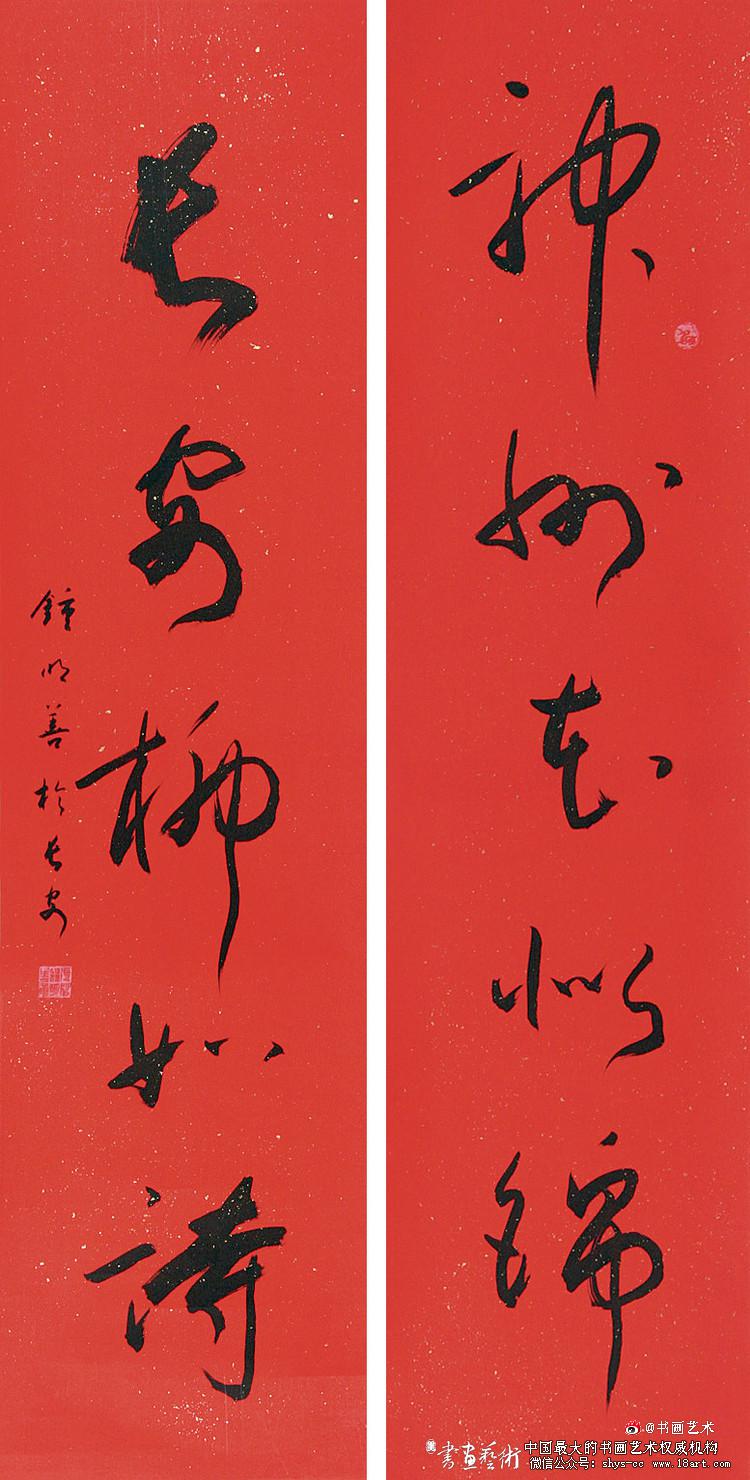 神州花似锦
长安柳如诗
鍾明善於长安
@书画艺术
書畫藝術
中国最大的书画艺术权威机构
微信公众号：shys-cc www.18art.com